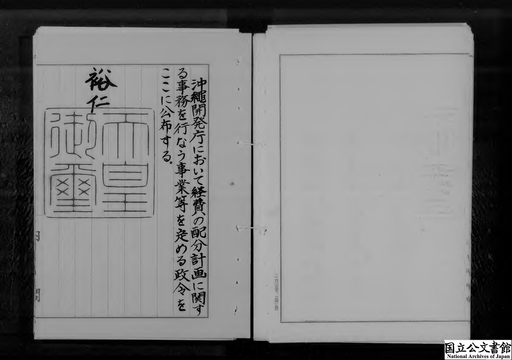 沖縄開発庁において経費の配分計画に関す
る事務を行なう事業等を定める政令を
ここに公布する。
裕仁
天皇
御璽
国立公文書館
National Archives of Japan